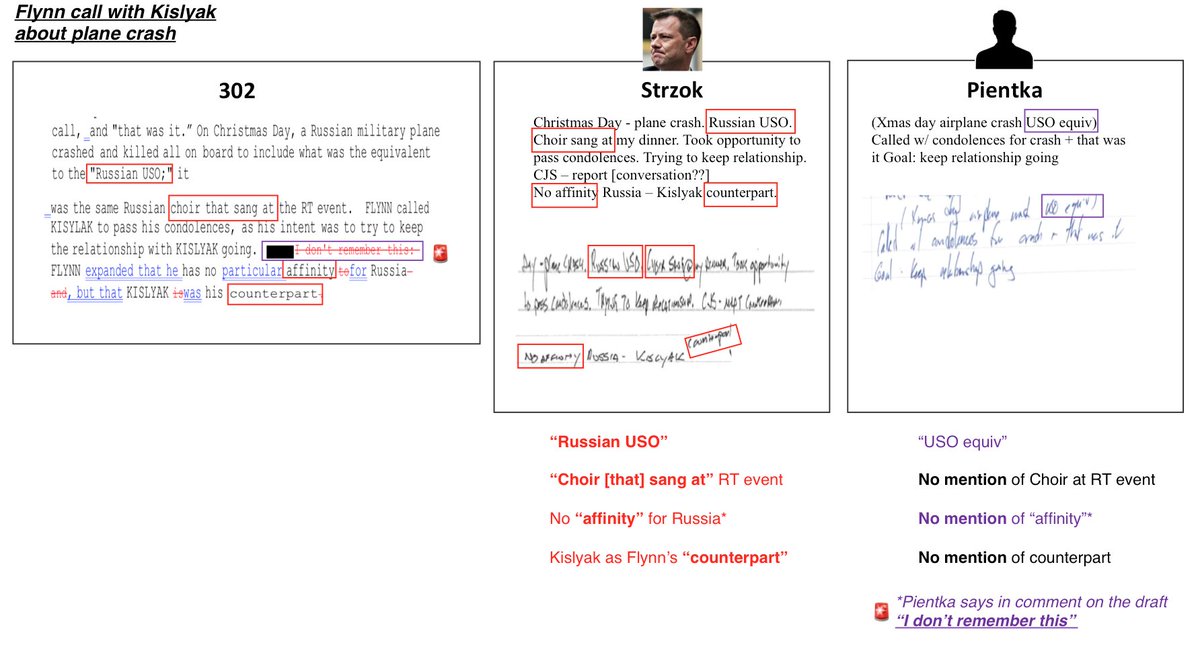 Flynn call with Kislyak
about plane crash
302
call, and "that was it." On Christmas Day, a Russian military plane
crashed and killed all on board to include what was the equivalent
to the "Russian USO;" it
was the same Russian choir that sang at the RT event. FLYNN called
KISYLAK to pass his condolences, as his intent was to try to keep
the relationship with KISLYAK going. I don't remember this:
FLYNN expanded that he has no particular affinity tofor Russia
and, but that KISLYAK iswas his counterpart
Strzok
Christmas Day - plane crash. Russian USO.
Choir sang at my dinner. Took opportunity to
pass condolences. Trying to keep relationship.
CJS – report [conversation??]
No affinity Russia – Kislyak counterpart.
Day - plane crash. Russian USO. Choir sang @ my dinner. Took opportunity
to pass condolences. Trying to keep relationship. CJS - rept
counterpart
No affinity Russia - Kislyak
Pientka
(Xmas day airplane crash USO equiv)
Called w/ condolences for crash + that was
it Goal: keep relationship going
(Xmas day airplane crash USO equiv)
Called w/ condolences for crash + that was it
Goal - keep relationship going
“Russian USO”
“Choir [that] sang at” RT event
No “affinity” for Russia*
Kislyak as Flynn’s “counterpart”
“USO equiv”
No mention of Choir at RT event
No mention of “affinity”*
No mention of counterpart
*Pientka says in comment on the draft
“I don’t remember this”